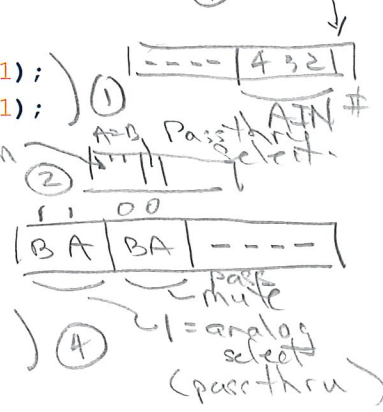 1);
1);
①
---- 4 3 2 1
AIN #
A=B
Passthru
Select.
②
1 1 0 0
B A BA ----
pass
mute
1 = analog
select
(passthru)
) ④